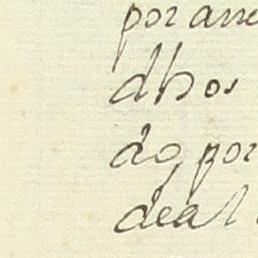 por arre
dhos
do, por
deal